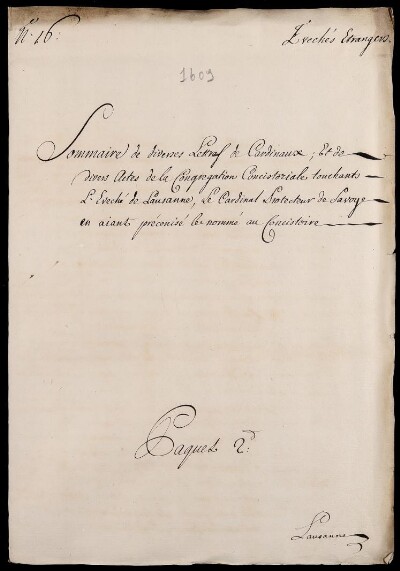 N.° 16:
Evechés Etrangers.
1609
Sommaire de diverses Lettres de Cardinaux, Et de
divers Actes de la Congregation Concistoriale touchants
L'Eveché de Lausanne, Le Cardinal Protecteur de Savoye
en aiant préconisé le nommé au Concistoire
Paquet 2.d
Lausanne